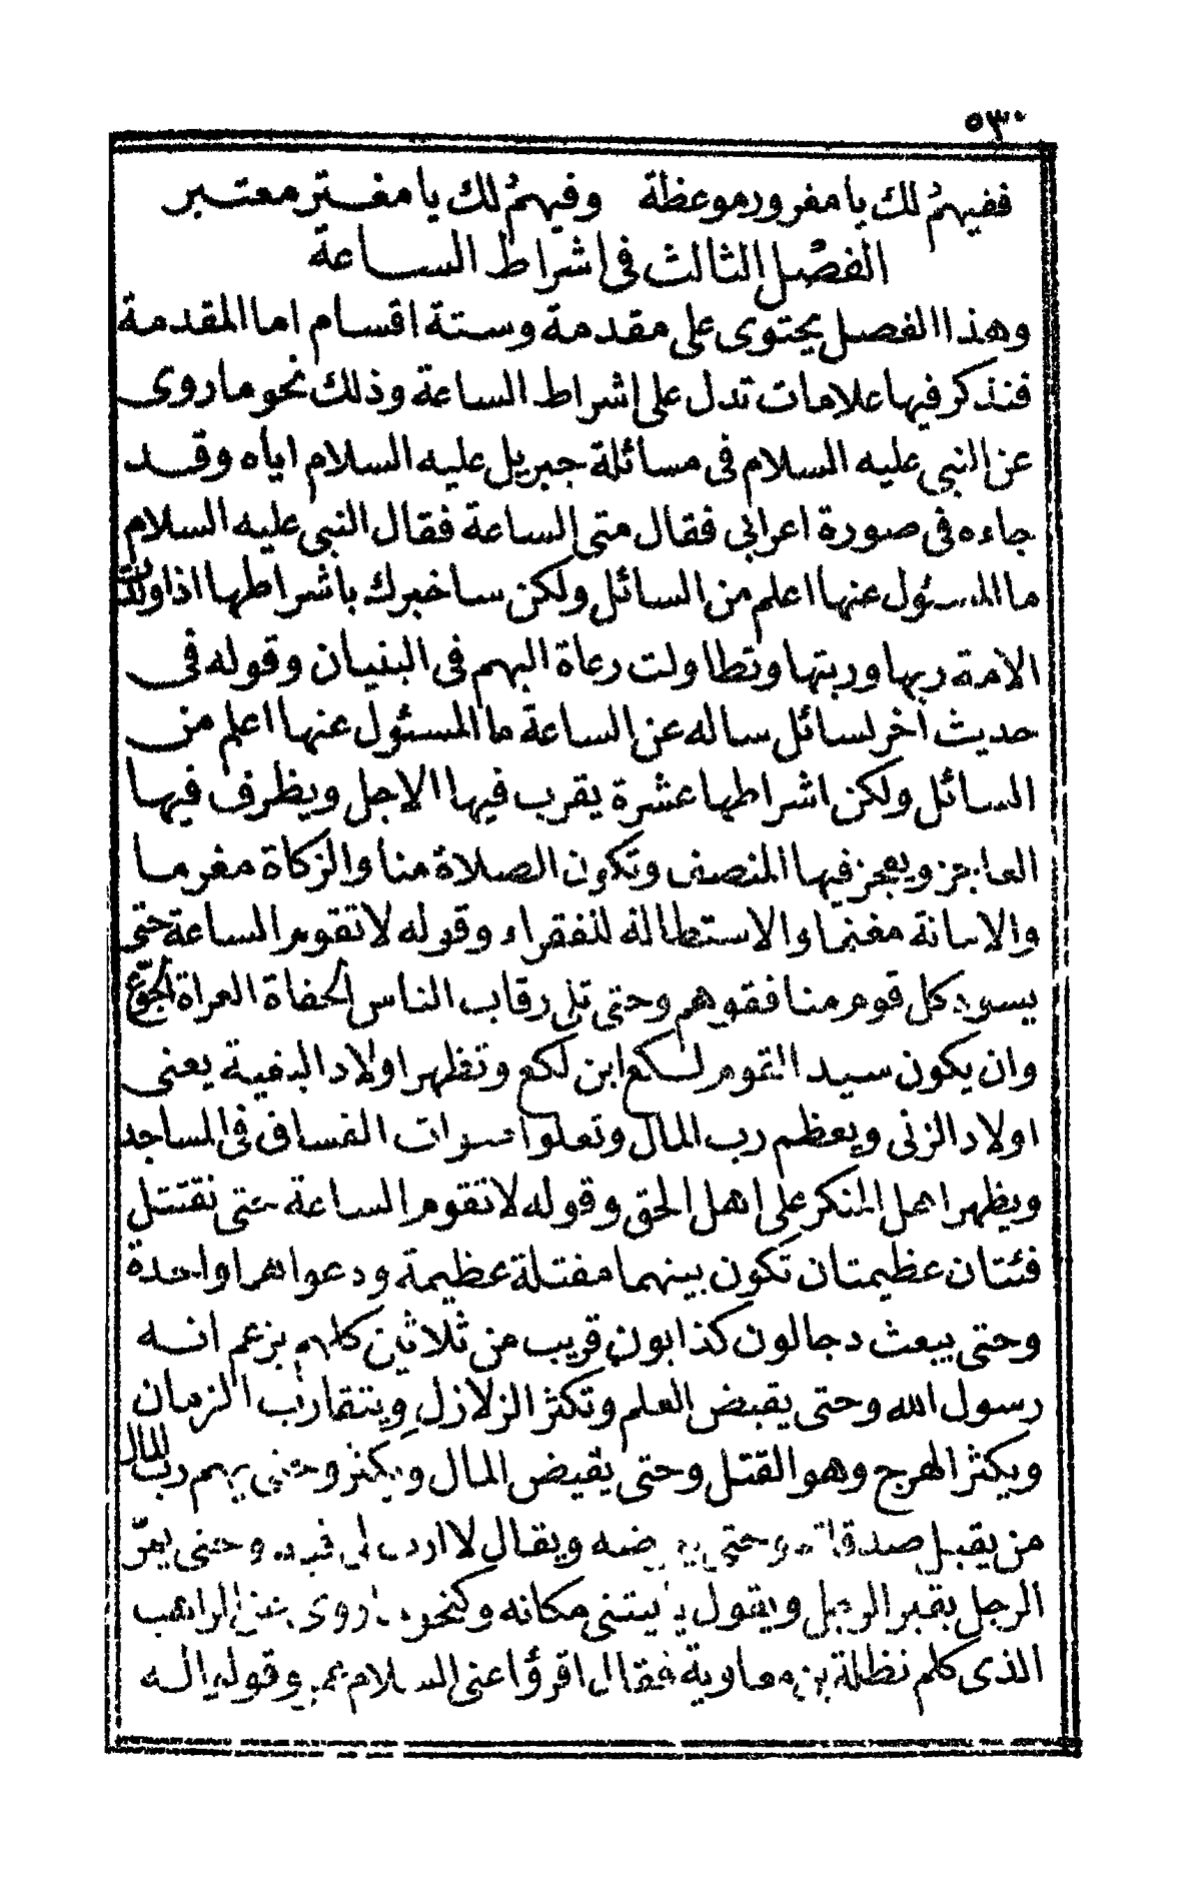 ٥٣٠
ففيهمُ لك يا مغرور موعظة وفيهمُ لك يا مغتر معتبر
الفصل الثالث فى اشراط الساعة
وهذا الفصل يحتوى على مقدمة وستة اقسام اما المقدمة
فنذكر فيها علامات تدل على اشراط الساعة وذلك نحو ما روى
عن النبى عليه السلام فى مسائلة جبريل عليه السلام اياه وقد
جاءه فى صورة اعرابى فقال متى الساعة فقال النبى عليه السلام
ما المسئول عنها اعلم من السائل ولكن ساخبرك باشراطها اذا ولدت
الامة ربها وربتها وتطاولت رعاة البهم فى البنيان وقوله فى
حديث آخر لسائل ساله عن الساعة ما المسئول عنها اعلم من
السائل ولكن اشراطها عشرة يقرب فيها الاجل ويظرف فيها
العاجز ويعجز فيها المنصف وتكون الصلاة منا والزكاة مغرما
والامانة مغنما والاستطالة للفقراء وقوله لا تقوم الساعة حتى
يسود كل قوم منافقوهم وحتى تلى رقاب الناس الحفاة العراة الجوّع
وان يكون سيد القوم لكع ابن لكع وتظهر اولاد البغية يعنى
اولاد الزنى ويعظم رب المال وتعلو اصوات الفساق فى المساجد
ويظهر اهل المنكر على اهل الحق وقوله لا تقوم الساعة حتى تقتتل
فئتان عظيمتان تكون بينهما مقتلة عظيمة ودعواهما واحدة
وحتى يبعث دجالون كذابون قريب من ثلاثين كلهم يزعم انه
رسول الله وحتى يقبض العلم وتكثر الزلازل ويتقارب الزمان
ويكثر الهرج وهو القتل وحتى يفيض المال ويكثر وحتى يهم رب المال
من يقبل صدقاته وحتى ويقال لا ارب لى فيه وحتى يمرّ
الرجل بقبر الرجل ويقول يا ليتنى مكانه وكنحو ما روى عن الراهب
الذى كلم نظلة بن معاوية فقال اقرؤا عنى السلام عمر وقولوا له